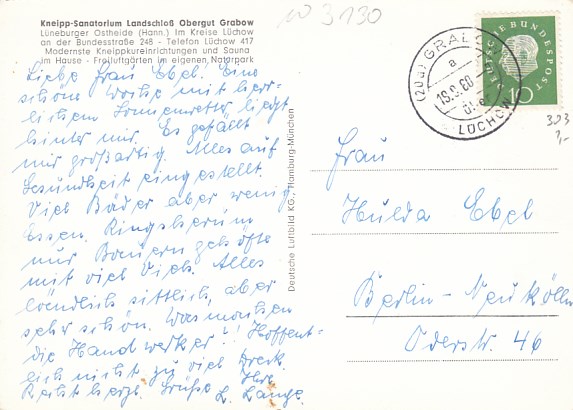 Kneipp-Sanatorium Landschloß Obergut Grabow
Lüneburger Ostheide (Hann.) Im Kreise Lüchow
an der Bundesstraße 248 - Telefon Lüchow 417
Modernste Kneippkureinrichtungen und Sauna
im Hause - Freiluftgärten im eigenen Naturpark
Liebe Frau Ebel! Eine
schöne Woche mit herr-
lichem Sonnenwetter liegt
hinter mir. Es gefällt
mir großartig. Alles auf
Gesundheit eingestellt.
Viel Bäder aber wenig
Essen. Ringsherum
nur Bauerngehöfte
mit viel Vieh. Alles
ländlich sittlich, aber
sehr schön. Was machen
die Handwerker?! Hoffent-
lich nicht zu viel Dreck.
Recht herzl. Grüße Ihre
L. Lange.
Deutsche Luftbild KG., Hamburg-München
W 3130
(20a)
a
LÜCHOW
DEUTSCHE BUNDESPOST
10
303
Frau
Hulda Ebel
Berlin-Neukölln
Oderstr. 46